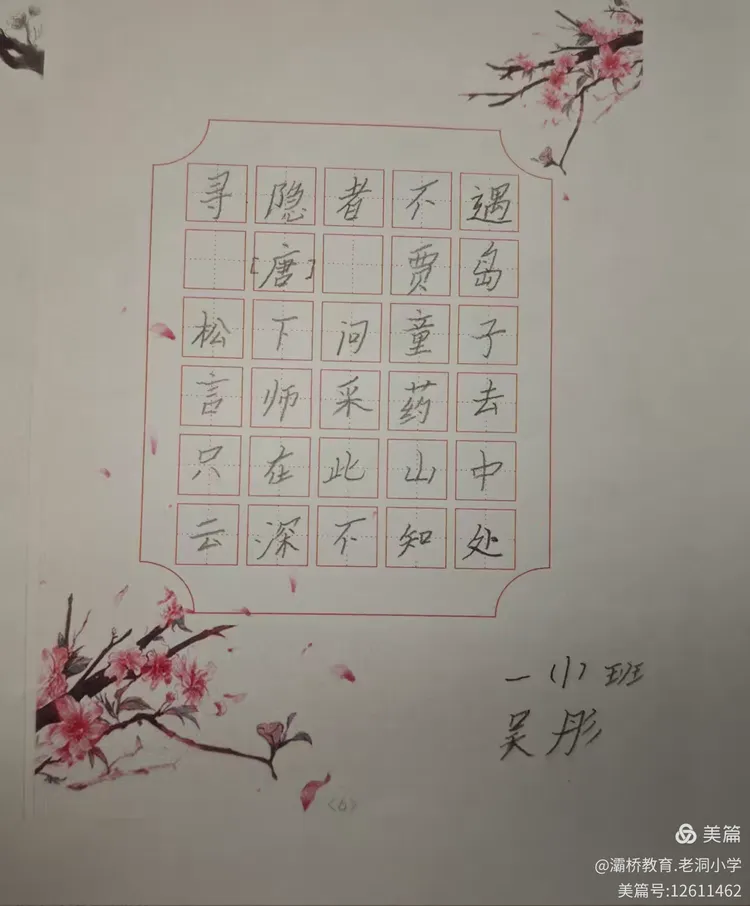 寻隐者不遇
[唐] 贾岛
松下问童子
言师采药去
只在此山中
云深不知处
一(小)班
吴彤
<6>
美篇
@灞桥教育.老洞小学
美篇号:12611462